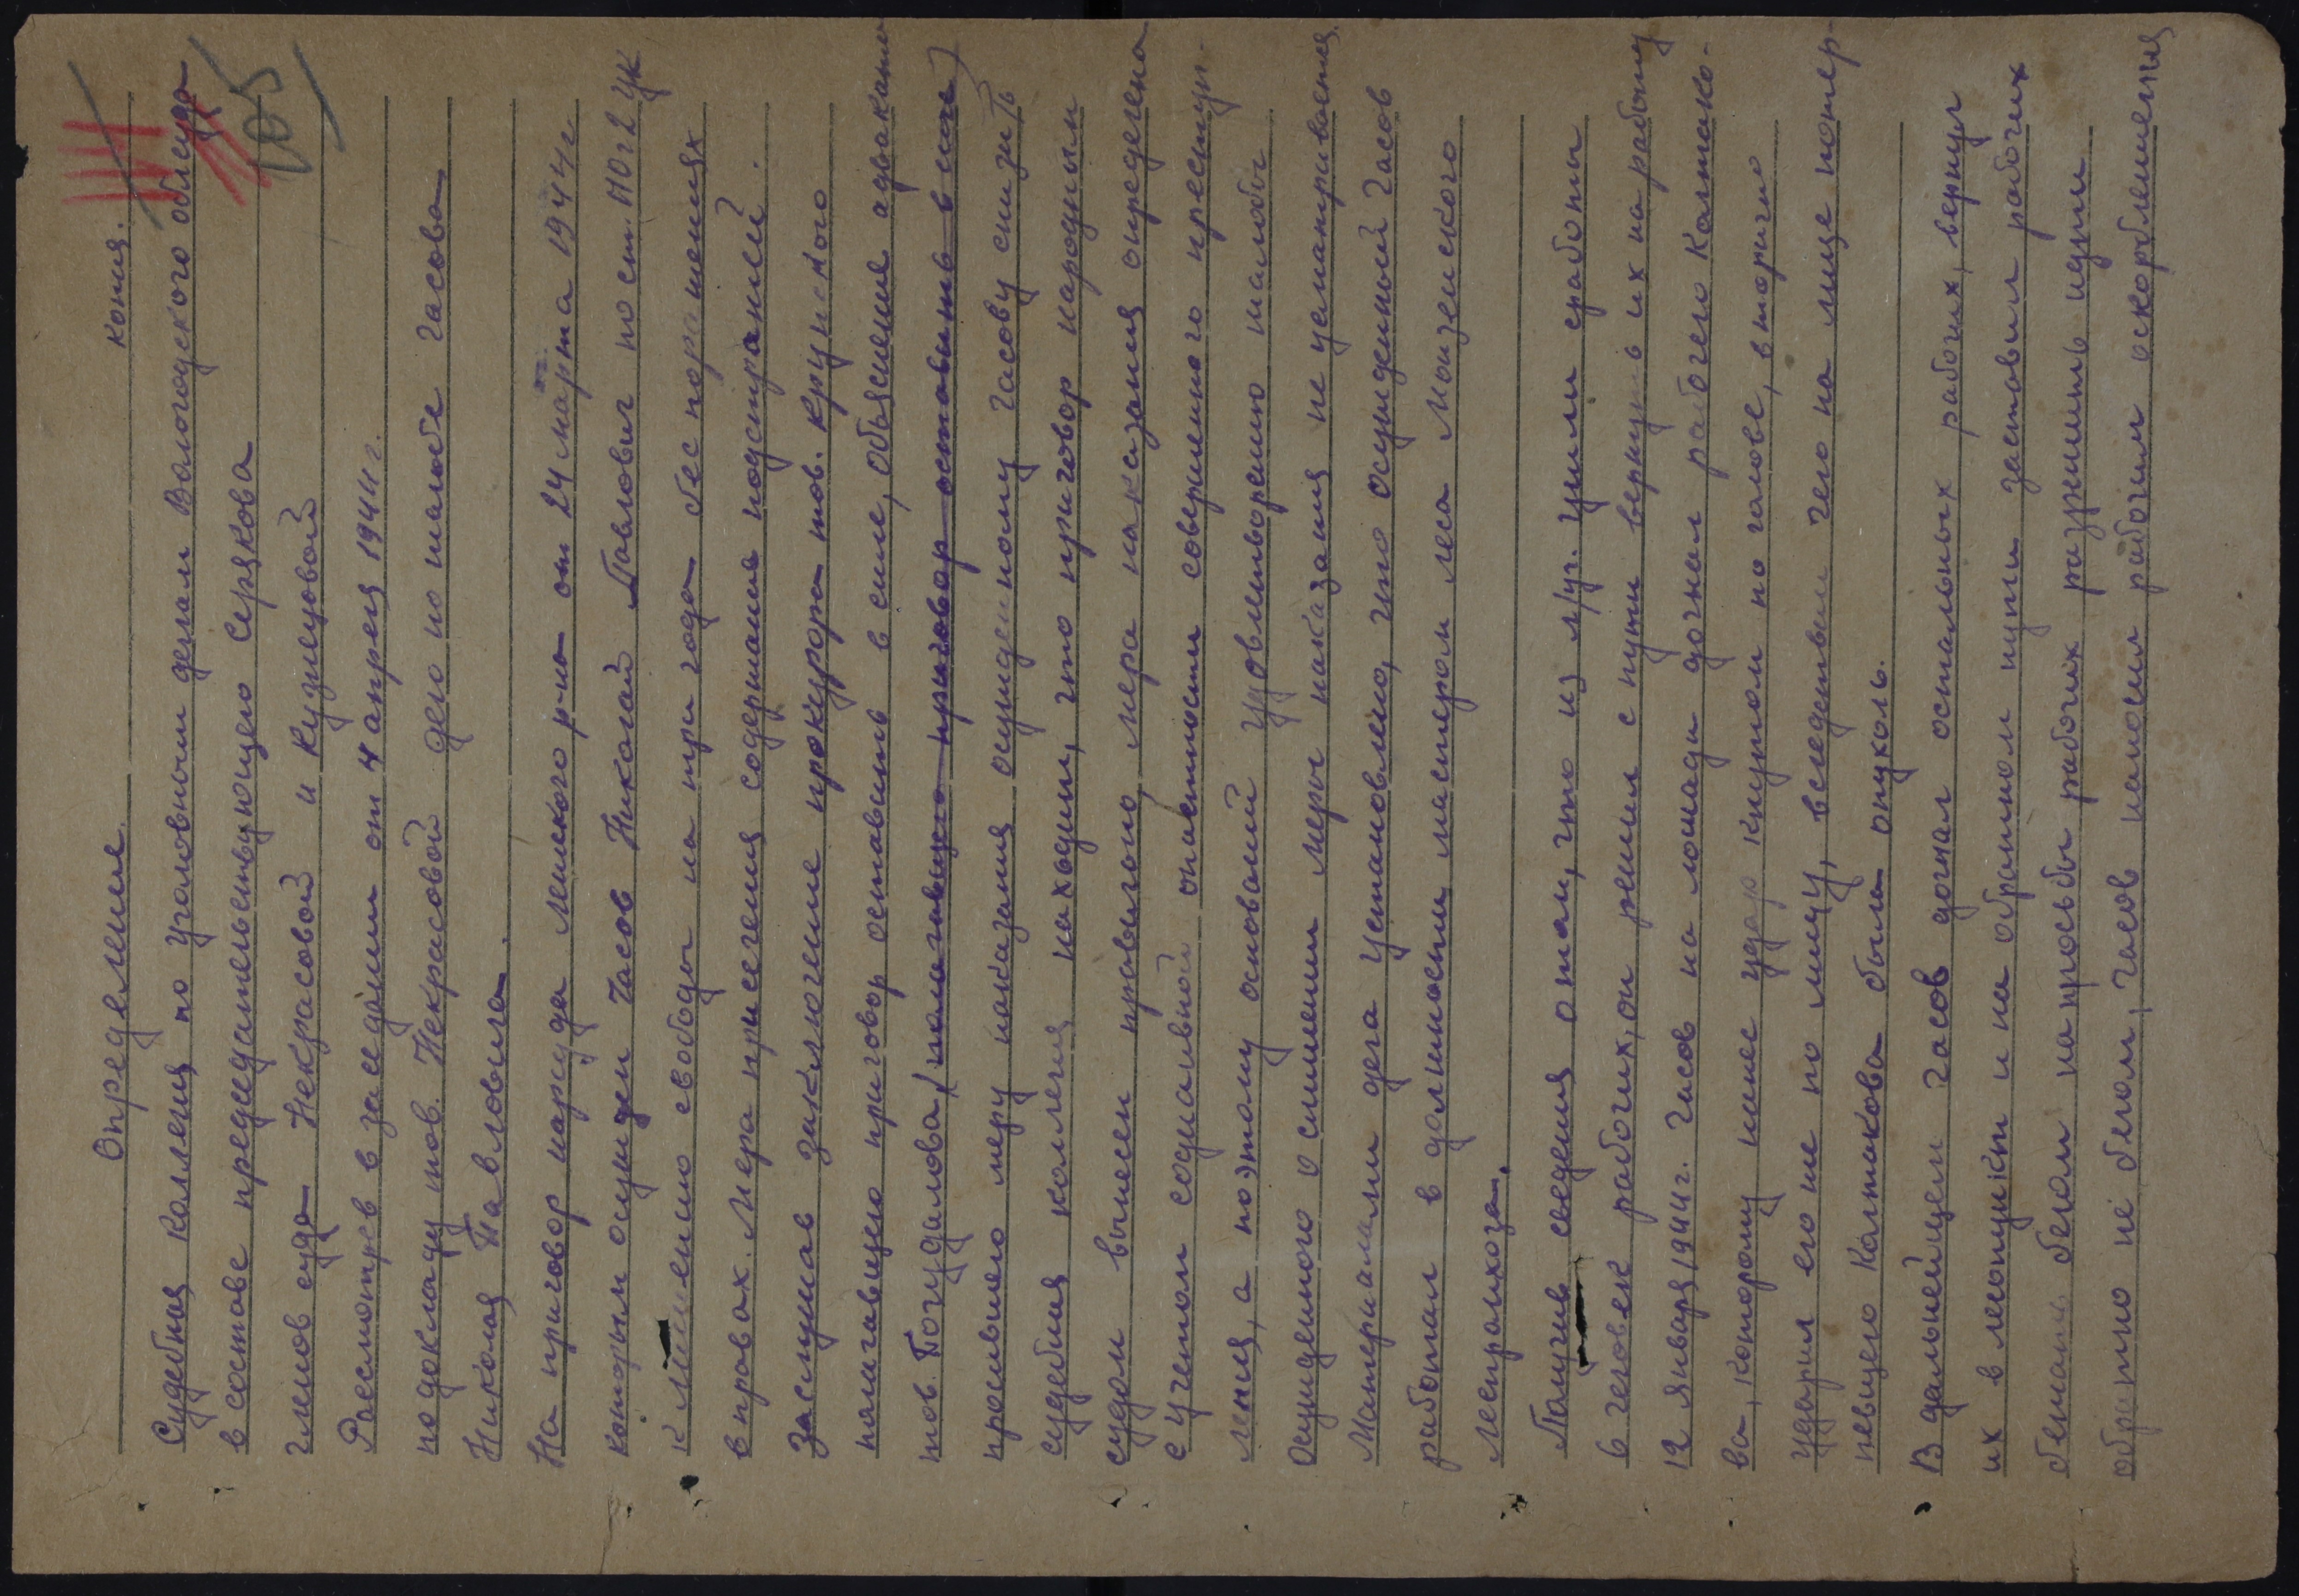 копия.
105
Определение.
Судебная коллегия по уголовным делам Вологодского облсуда
в составе председательствующего Серякова
членов суда Некрасовой и Кузнецовой
Рассмотрев в заседании от 4 апреля 1944 г.
по докладу тов. Некрасовой дело по жалобе Часова
Николая Павловича.
На приговор нарсуда Лежского р-на от 24 марта 1944 г.
которым осужден Часов Николай Павлович по ст. 110 ч 2 УК
к лишению свободы на три года без поражения
в правах. Мера пресечения содержание под стражей.
Заслушав заключение прокурора тов.
полагавшего приговор оставить в силе, объяснение адвоката
тов. Погудалова, (полагавшего приговор оставить в силе)
просившего меру наказания осужденному Часову снизить
судебная коллегия находит, что приговор народным
судом вынесен правильно, мера наказания определена
с учетом социальной опасности совершенного преступ-
ления, а поэтому оснований к удовлетворению жалобы
осужденного о снижении меры наказания не усматривается.
Материалами дела установлено, что осужденный Часов
работал в должности мастером леса Монзенского
леспромхоза.
Получив сведения о том, что из л/уч. ушли с работы
6 человек рабочих, он решил с пути вернуть их на работу
12 января 1944 г. Часов на лошади догнал рабочего Колпако-
ва, которому нанес удар кнутом по голове, вторично
ударил его же по лицу, вследствии чего на лице потер-
певшего Колпакова была опухоль.
В дальнейшем Часов догнал остальных рабочих, вернул
их в лесопункт и на обратном пути заставил рабочих
бежать бегом на просьбы рабочих разрешить идти
обратно не бегом, Часов наносил рабочим оскорбления